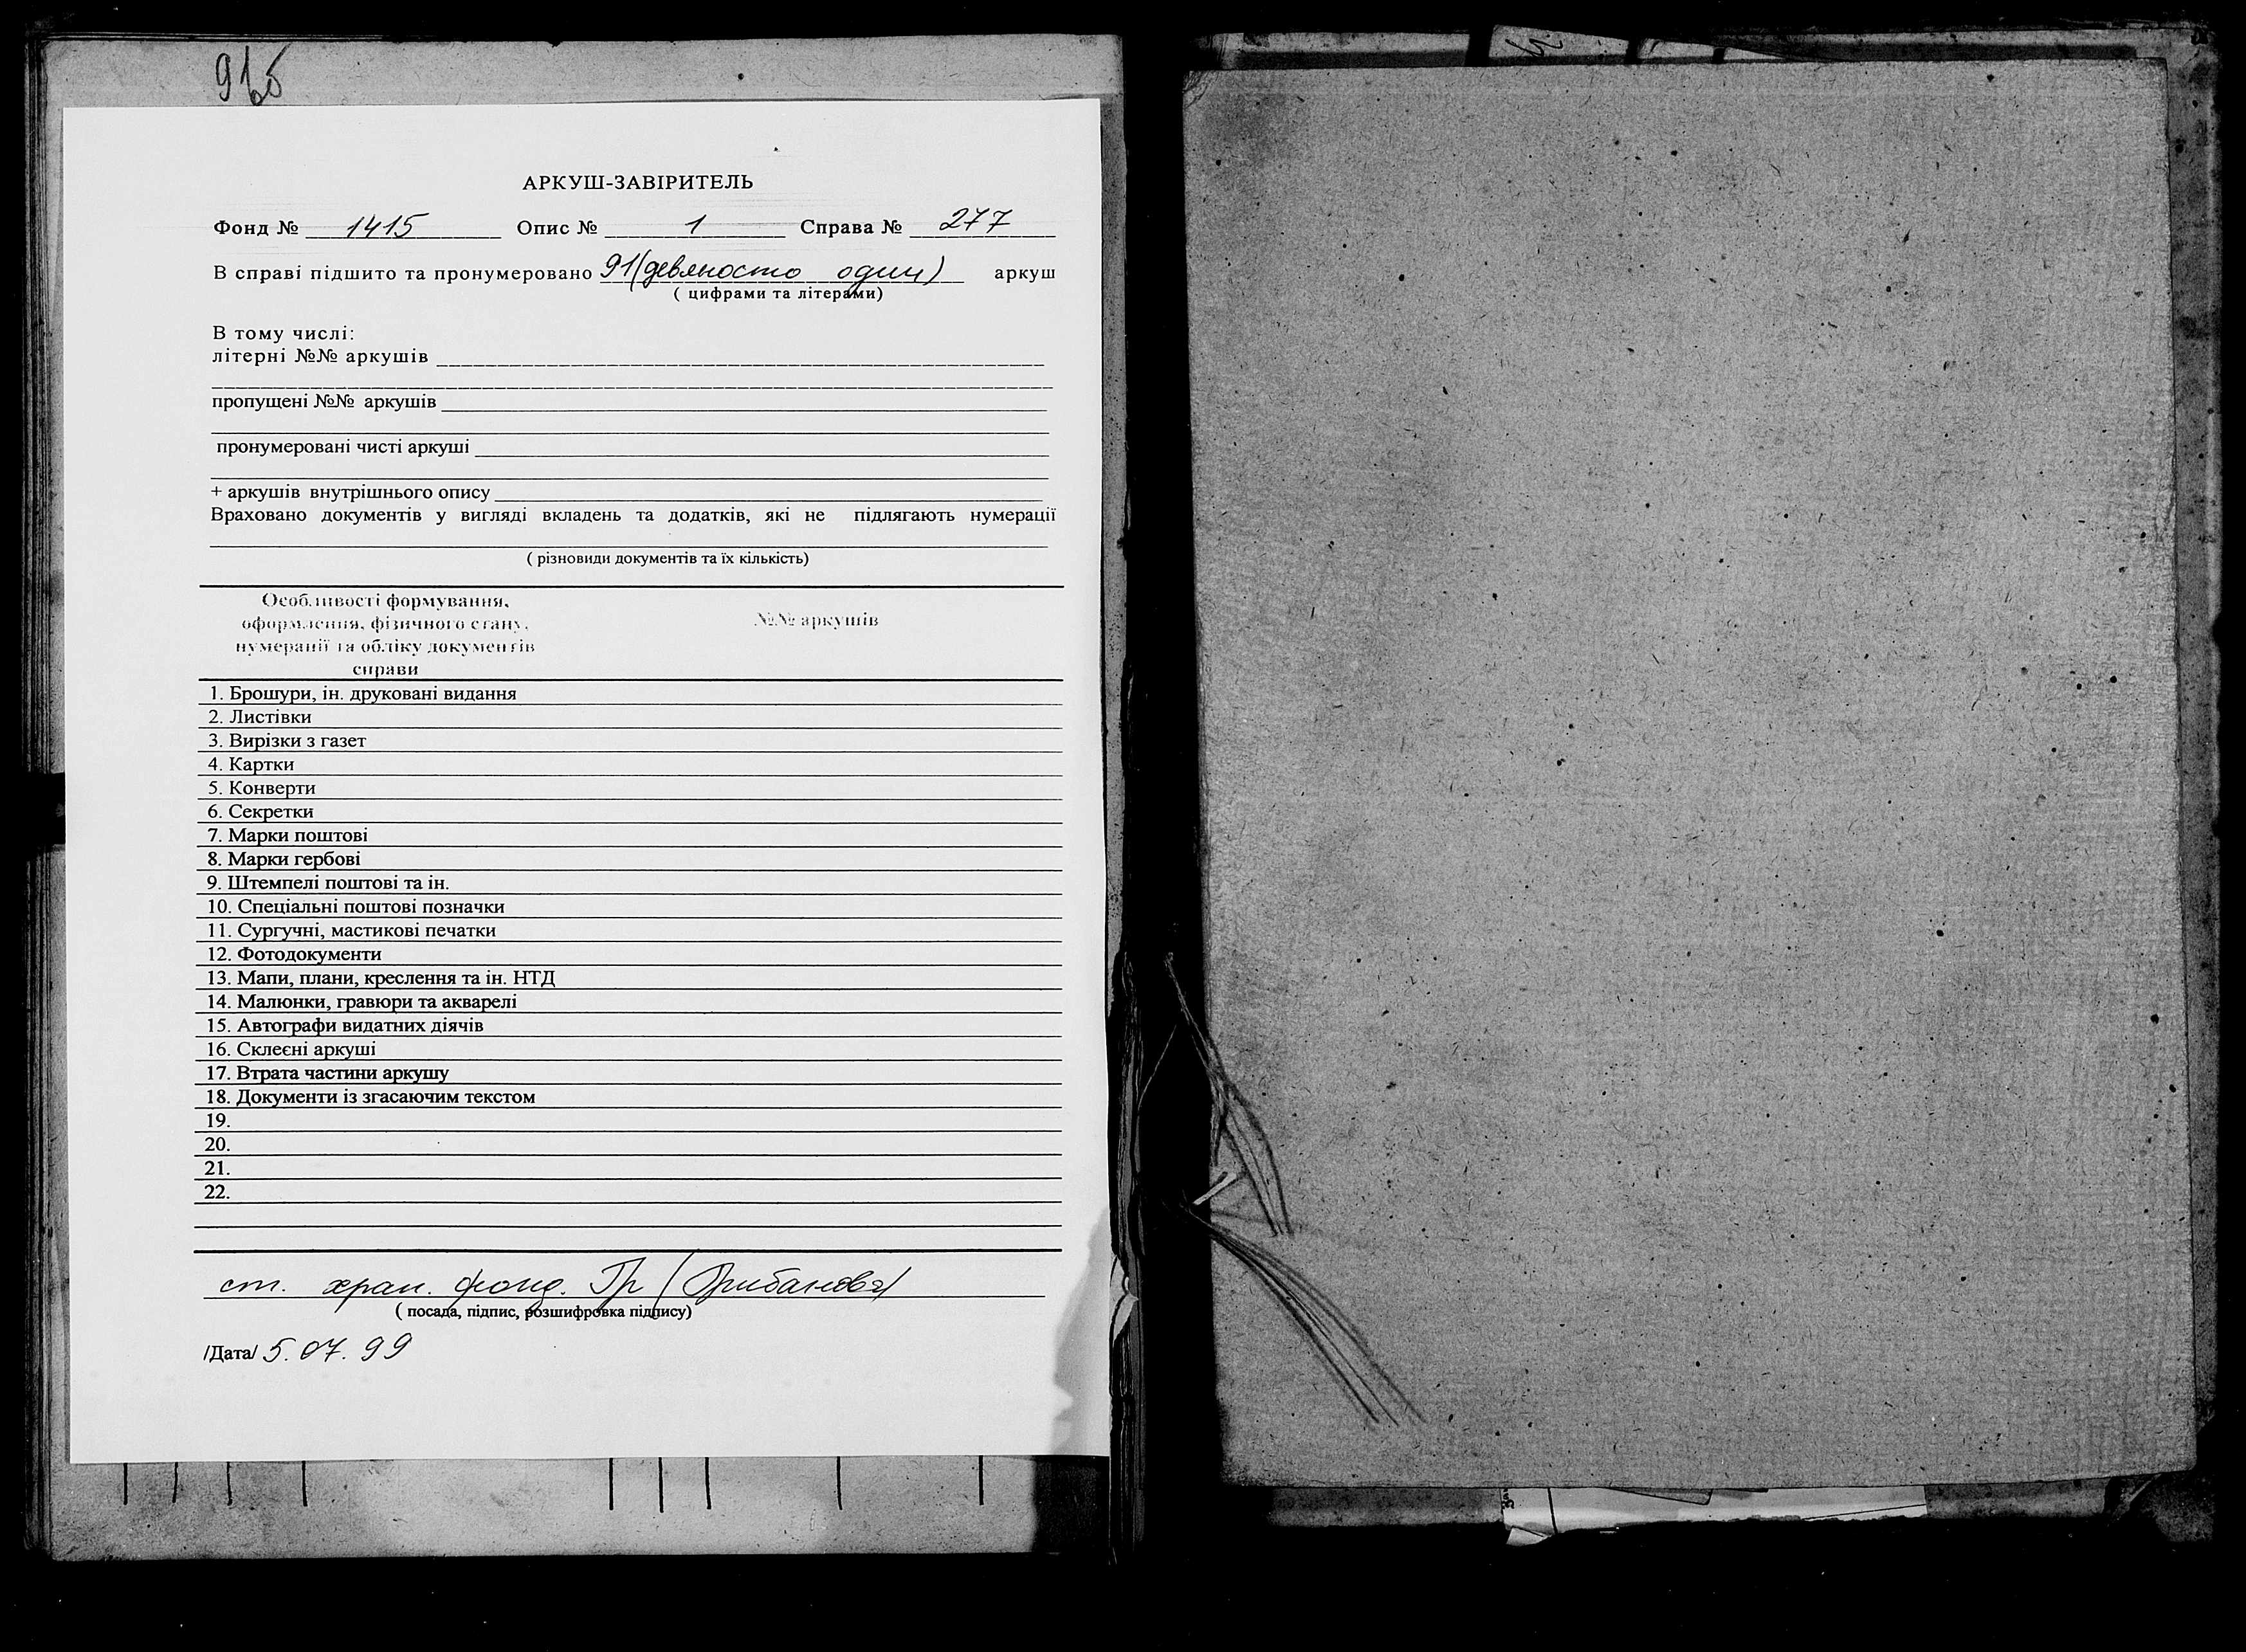 АРКУШ-ЗАВІРИТЕЛЬ
Фонд № 1415 Опис № 1 Справа № 277
В справі підшито та пронумеровано 91 (девяносто один) аркуш
( цифрами та літерами)
В тому числі:
літерні №№ аркушів
пропущені №№ аркушів
пронумеровані чисті аркуші
+ аркушів внутрішнього опису
Враховано документів у вигляді вкладень та додатків, які не підлягають нумерації
( різновиди документів та їх кількість)
Особливості формування, №№ аркушів
оформлення, фізичного стану,
нумерації та обліку документів
справи
1. Брошури, ін. друковані видання
2. Листівки
3. Вирізки з газет
4. Картки
5. Конверти
6. Секретки
7. Марки поштові
8. Марки гербові
9. Штемпелі поштові та ін.
10. Спеціальні поштові позначки
11. Сургучні, мастикові печатки
12. Фотодокументи
13. Мапи, плани, креслення та ін. НТД
14. Малюнки, гравюри та акварелі
15. Автографи видатних діячів
16. Склеєні аркуші
17. Втрата частини аркушу
18. Документи із згасаючим текстом
19.
20.
21.
22.
ст. хран. фонд. Гр (Грибанова)
( посада, підпис, розшифровка підпису)
/Дата/ 5.07.99